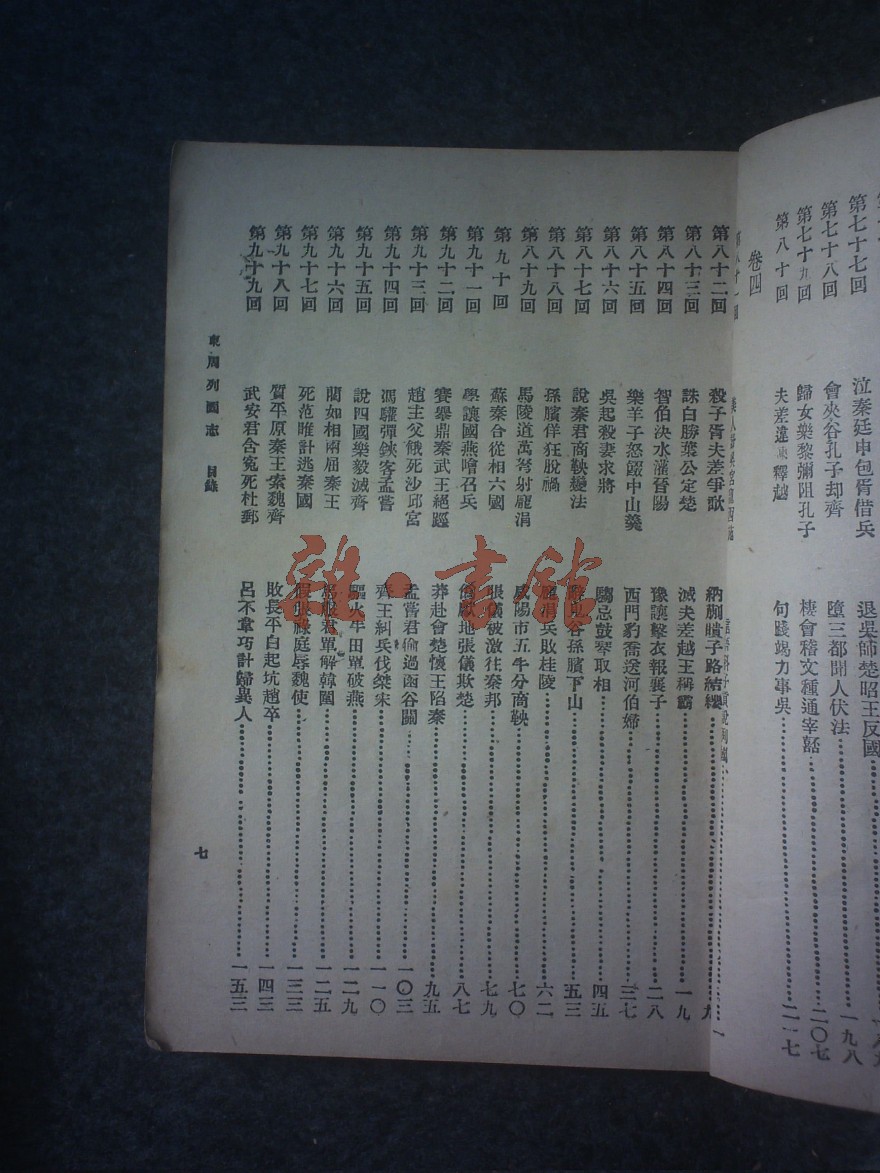 第七十七回 泣秦廷申包胥借兵 退吳師楚昭王反國
第七十八回 會夾谷孔子却齊 墮三都聞人伏法 一九八
第七十九回 歸女樂黎彌阻孔子 棲會稽文種通宰嚭 二〇七
第八十回 夫差違諫釋越 句踐竭力事吳 二一七
卷四
第八十一回
第八十二回 殺子胥夫差爭歃 納蒯瞶子路結纓 九
第八十三回 誅白勝葉公定楚 滅夫差越王稱霸 一九
第八十四回 智伯決水灌晉陽 豫讓擊衣報襄子 二八
第八十五回 樂羊子怒餟中山羹 西門豹喬送河伯婦 三七
第八十六回 吳起殺妻求將 騶忌鼓琴取相 四五
第八十七回 說秦君商鞅變法 辭鬼谷孫臏下山 五三
第八十八回 孫臏佯狂脫禍 龐涓兵敗桂陵 六二
第八十九回 馬陵道萬弩射龐涓 咸陽市五牛分商鞅 七〇
第九十回 蘇秦合從相六國 張儀被激往秦邦 七九
第九十一回 學讓國燕噲召兵 偽獻地張儀欺楚 八七
第九十二回 賽舉鼎秦武王絕脛 莽赴會楚懷王陷秦 九五
第九十三回 趙主父餓死沙邱宮 孟嘗君偷過函谷關 一〇三
第九十四回 馮驩彈鋏客孟嘗 齊王糾兵伐桀宋 一一〇
第九十五回 說四國樂毅滅齊 驅火牛田單破燕 一一九
第九十六回 藺如相兩屈秦王 馬服君單解韓圍 一二五
第九十七回 死范睢計逃秦國 假張祿庭辱魏使 一三三
第九十八回 質平原秦王索魏齊 敗長平白起坑趙卒 一四三
第九十九回 武安君含冤死杜郵 呂不韋巧計歸異人 一五三
東周列國志 目錄 七